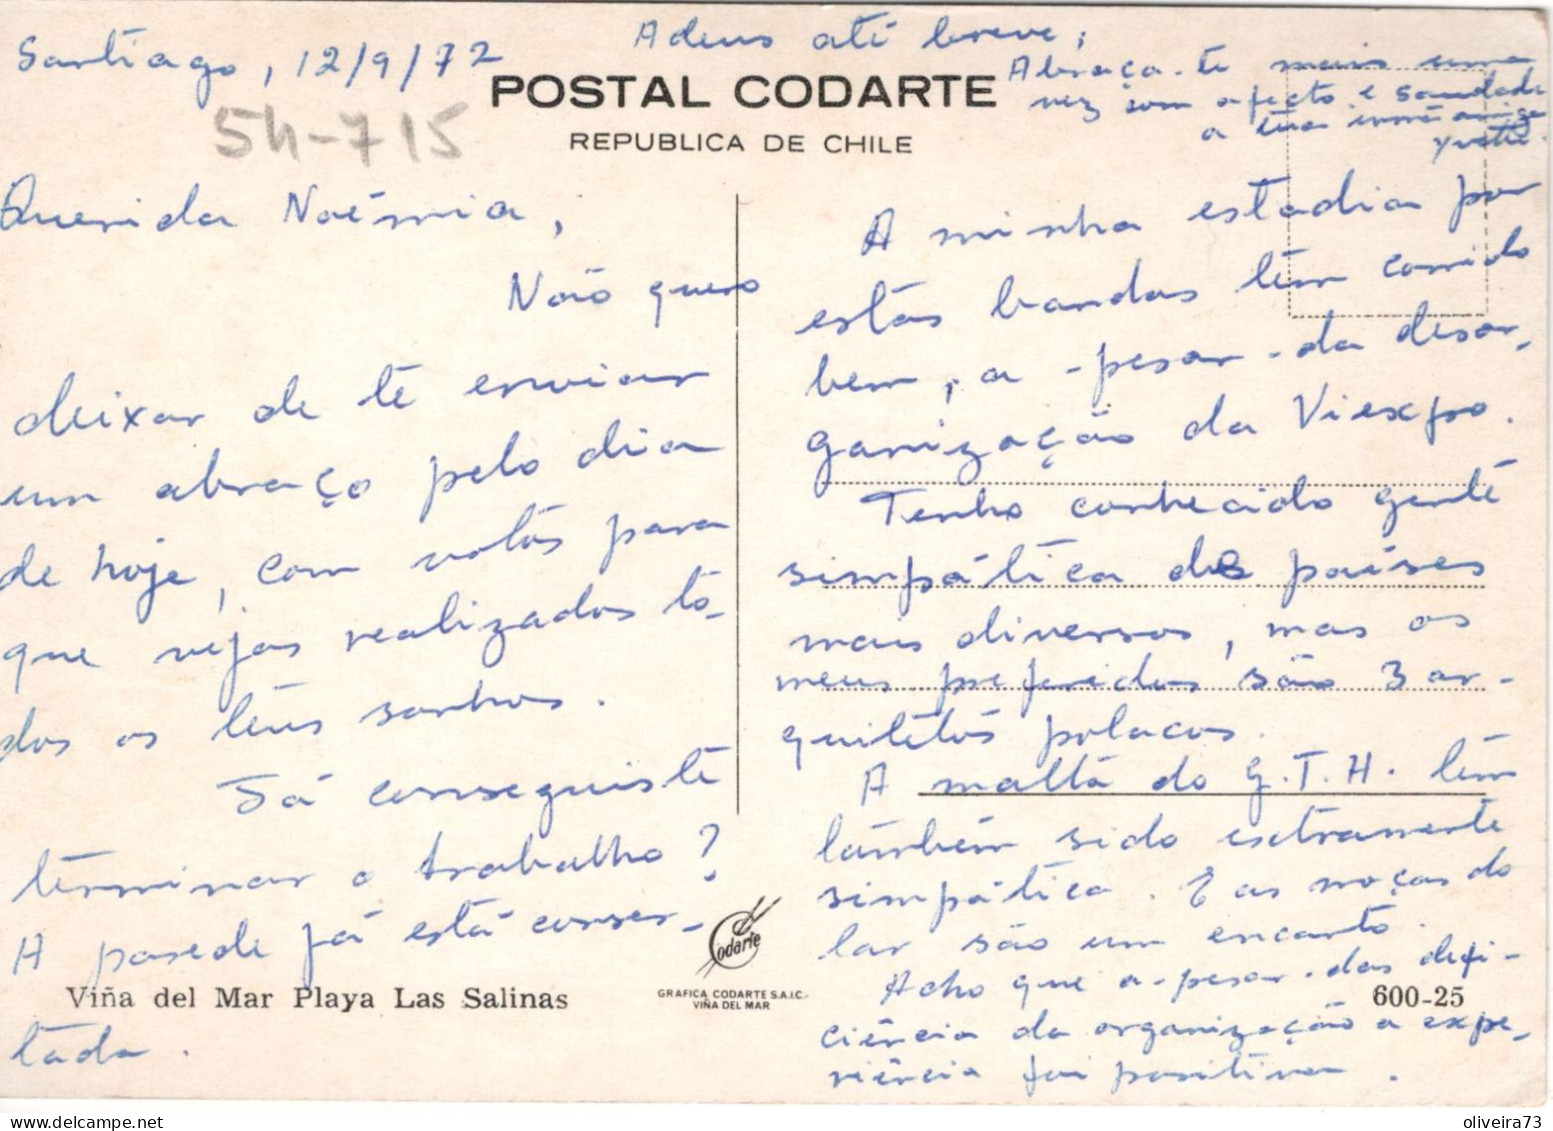 Santiago, 12/9/72
54-715
Querida Noémia,
Não quero
deixar de te enviar
um abraço pelo dia
de hoje, com votos para
que vejas realizados to-
dos os teus sonhos.
Já conseguiste
terminar o trabalho?
A parede já está conser-
tada.
Viña del Mar Playa Las Salinas
POSTAL CODARTE
REPUBLICA DE CHILE
Codarte
GRAFICA CODARTE S.A.I.C.-
VIÑA DEL MAR
A minha estadia por
estas bandas tem corrido
bem, a-pesar-da desor-
ganização da Viexpo.
Tenho conhecido gente
simpática dos países
mais diversos, mas os
meus preferidos são 3 ar-
quitetos polacos.
A malta do G.T.H. tem
também sido extramente
simpática. E as moças do
lar são um encanto.
Acho que a-pesar-das defi-
ciência da organização a expe-
riência foi positiva.
600-25
Adeus até breve;
Abraça-te mais uma
vez com afecto e saudade
a tua amiga
Yvette.
oliveira73